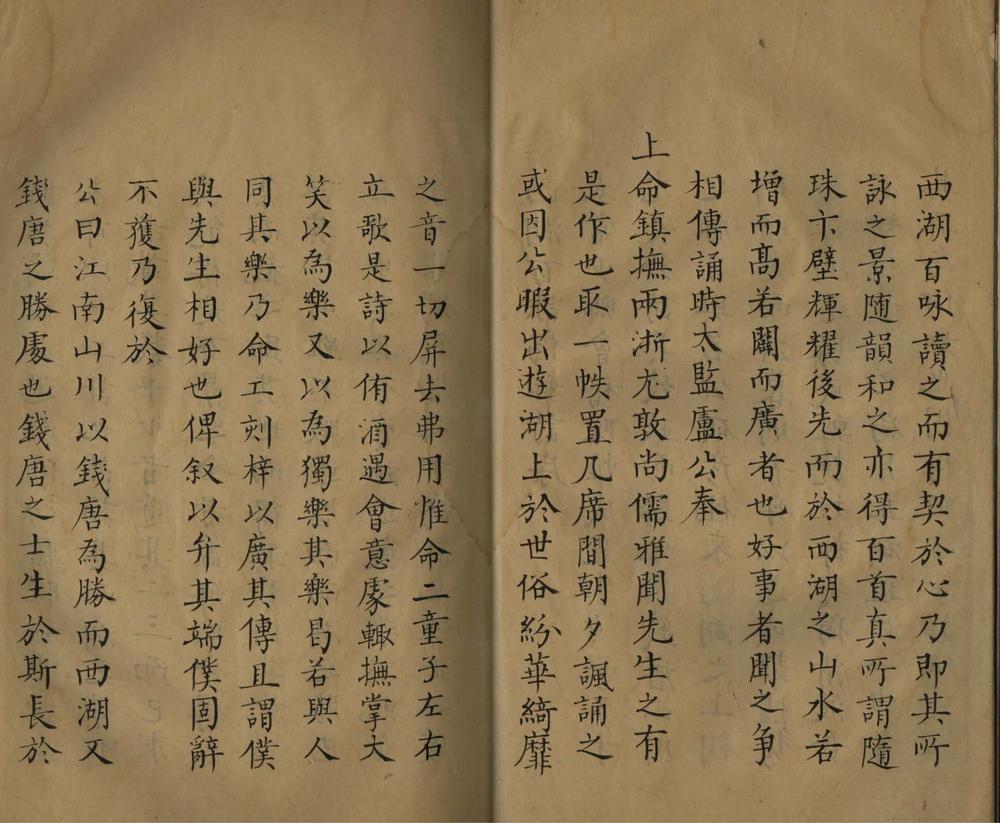 西湖百咏讀之而有契於心乃即其所
詠之景随韻和之亦得百首真所謂隨
珠卞璧輝耀後先而於西湖之山水若
增而髙若闢而廣者也好事者聞之争
相傳誦時太監盧公奉
上命鎮撫兩浙尤敦尚儒雅聞先生之有
是作也取一帙置几席間朝夕諷誦之
或因公暇出遊湖上於世俗紛華綺靡
之音一切屏去弗用惟命二童子左右
立歌是詩以侑酒遇會意處輙撫掌大
笑以為樂又以為獨樂其樂曷若與人
同其樂乃命工刻梓以廣其傳且謂僕
與先生相好也俾叙以弁其端僕固辭
不獲乃復於
公曰江南山川以錢唐為勝而西湖又
錢唐之勝處也錢唐之士生於斯長於